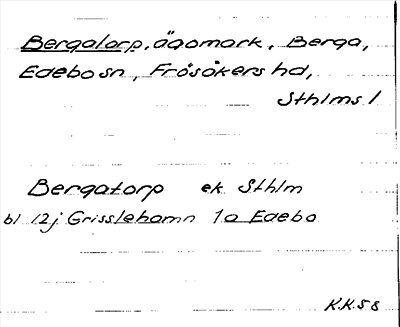 Bergatorp, ägomark, Berga,
Edebo sn, Frösåkers hd,
Sthlms l
Bergatorp ek Sthlm
bl 12j Grisslehamn 1a Edebo
K.K.58